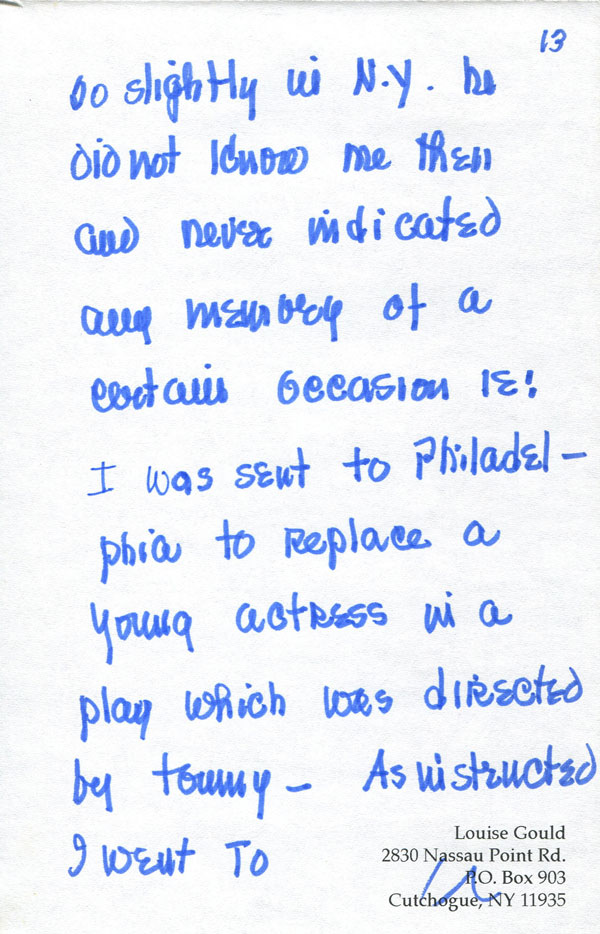 13
so slightly in N.Y. he
did not know me then
and never indicated
any memory of a
certain occasion IE:
I was sent to Philadel-
phia to replace a
young actress in a
play which was directed
by Tommy - As instructed
I went To
Louise Gould
2830 Nassau Point Rd.
P.O. Box 903
Cutchogue, NY 11935